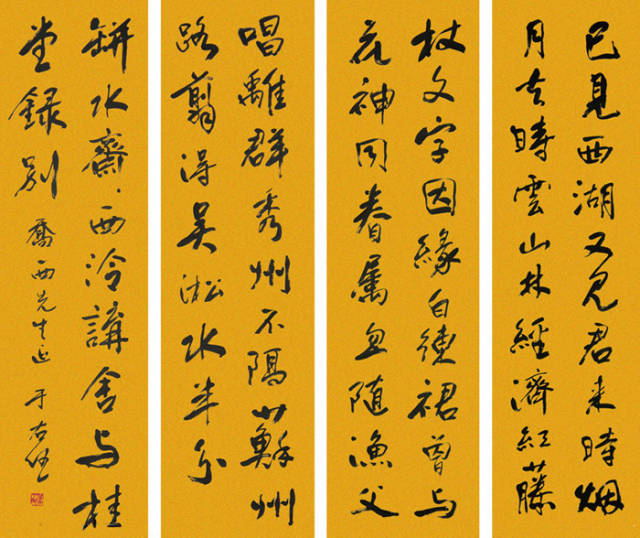 已見西湖又見君来時烟
月去時雲山林經濟紅藤
杖文字因緣白練裙曾与
花神同眷属忽随漁父
唱離群秀州不隔蘇州
路翦得吴淞水半分
缾水齋西泠講舍与桂
堂録别
喬西先生正 于右任